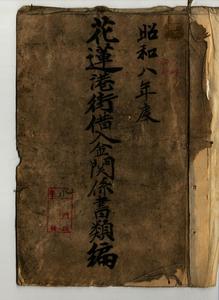 昭和八年度
花蓮港街借入金関係書類編
永